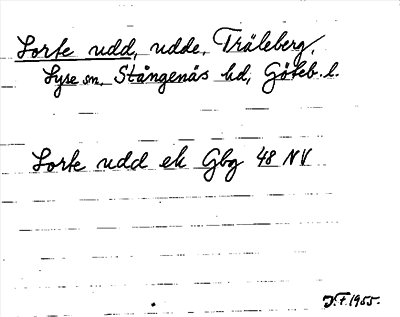 Sorte udd, udde, Träleberg,
Lyse sn, Stångenäs hd, Göteb. l.
Sorte udd ek Gbg 48 NV
J.F. 1955.